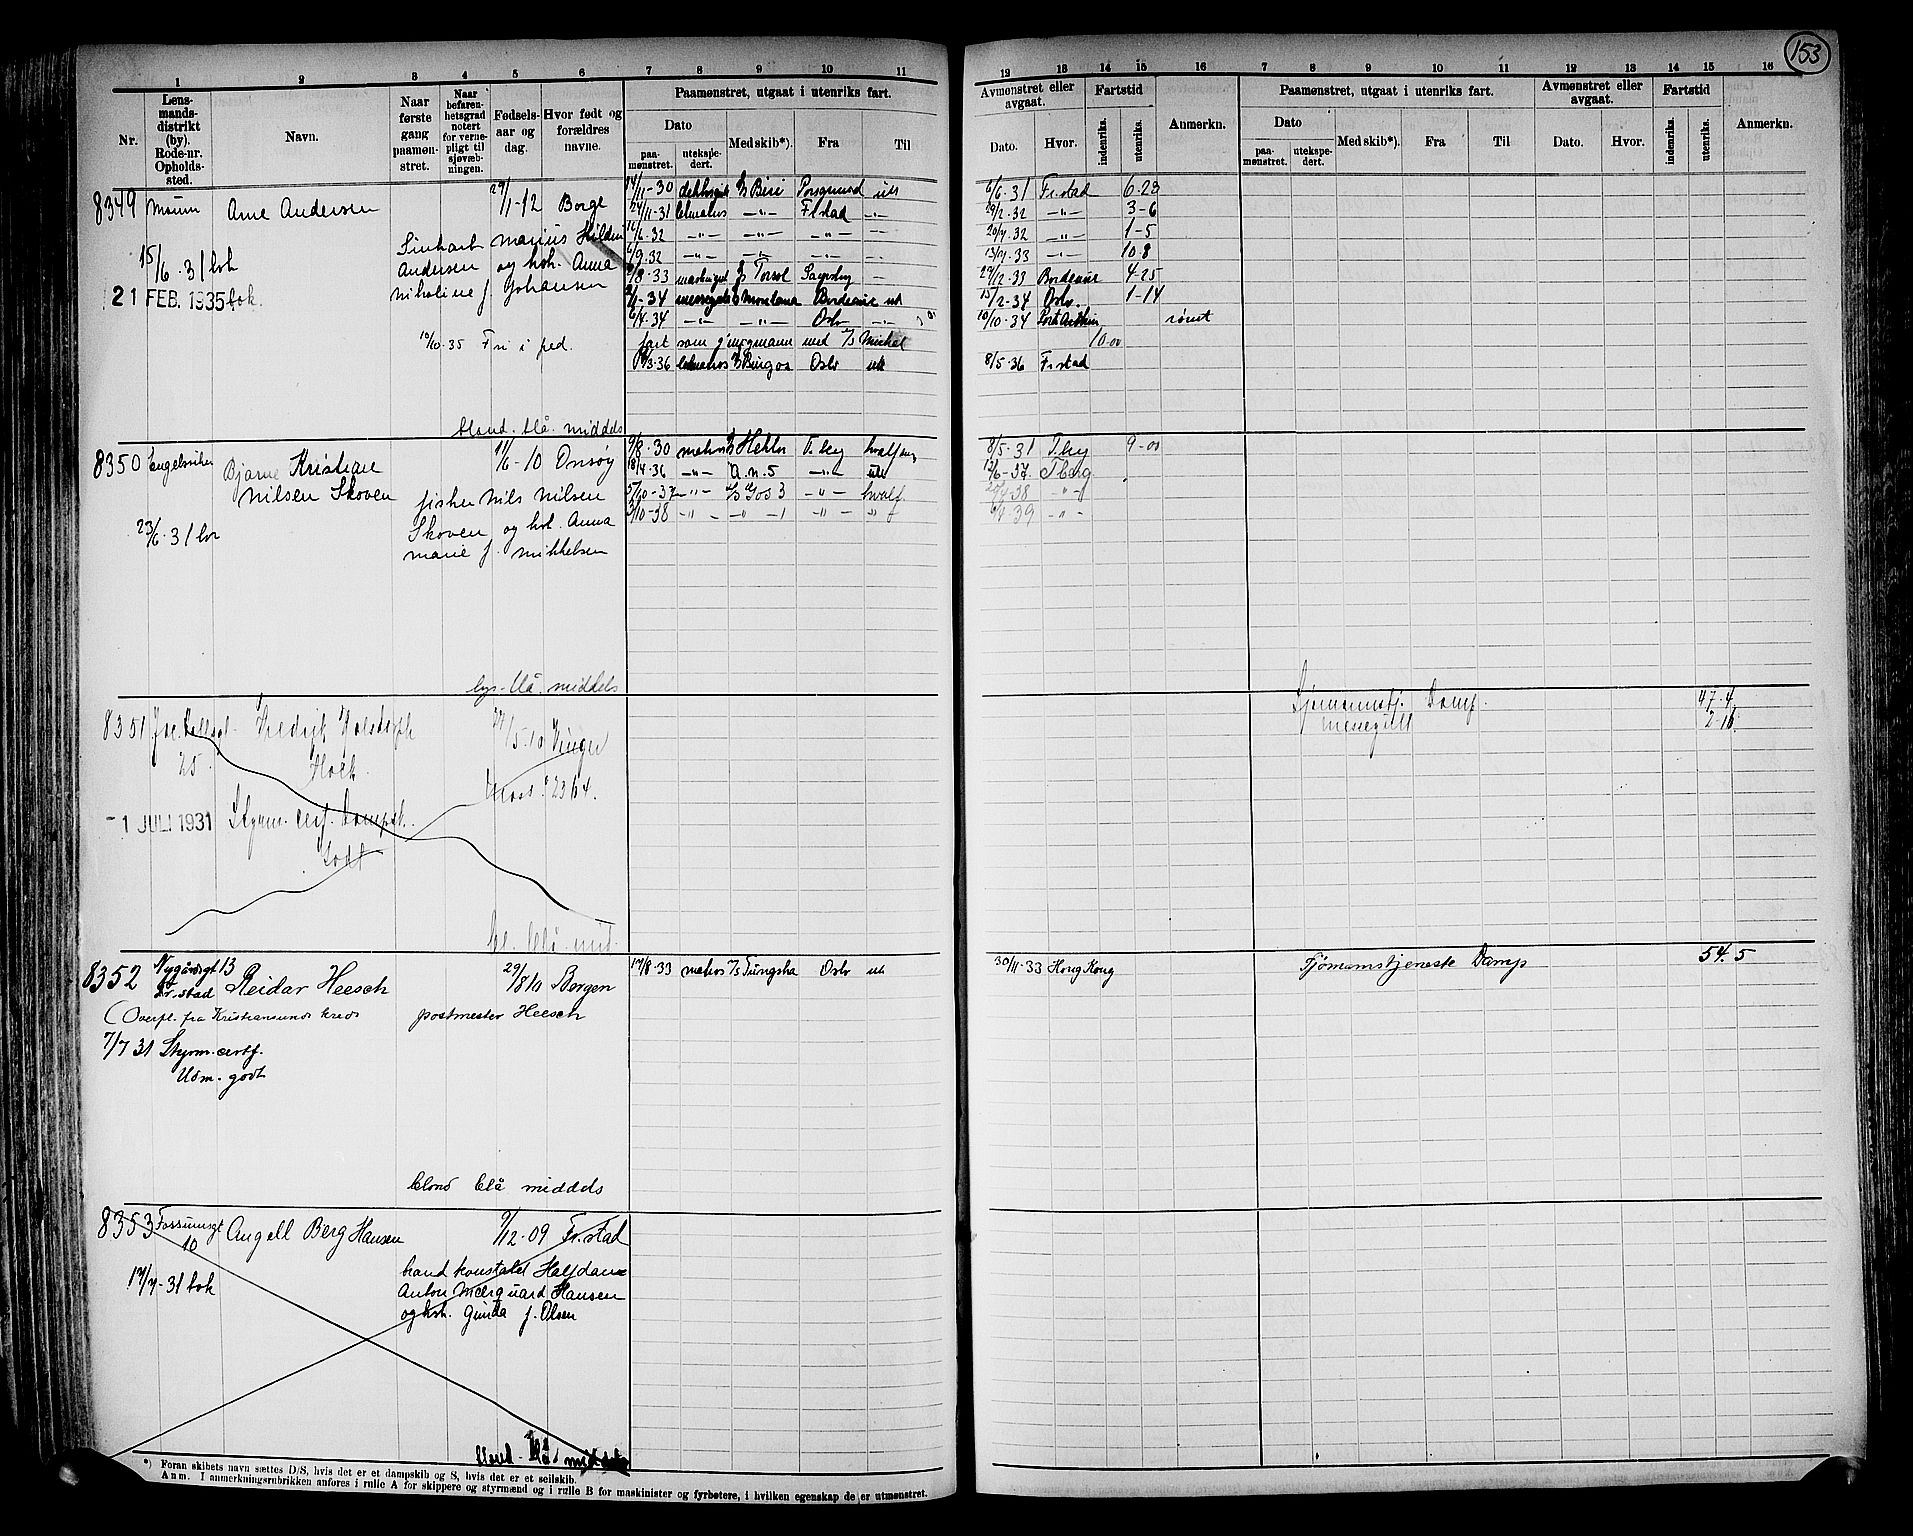 153
1 2 3 4 5 6 7 8 9 10 11
Nr.
Lens-
mands-
distrikt
(by).
Rode-nr.
Opholds-
sted.
Navn.
Naar
første
gang
paamøn-
stret.
Naar
befaren-
hetsgrad
notert
for verne-
pligt til
sjøvæb-
ningen.
Fødsels-
aar og
dag.
Hvor født og
forældres
navne.
Paamønstret, utgaat i utenriks fart.
Dato
paa-
mønstret.
utekspe-
dert.
Med skib*).
Fra
Til
12 13 14 15 16 7 8 9 10 11 12 13 14 15 16
Avmønstret eller
avgaat.
Dato.
Hvor.
Fartstid
indenriks.
utenriks.
Anmerkn.
Paamønstret, utgaat i utenriks fart.
Dato
paa-
mønstret.
utekspe-
dert.
Med skib*).
Fra
Til
Avmønstret eller
avgaat.
Dato.
Hvor.
Fartstid
indenriks.
utenriks.
Anmerkn.
8349 Arne Andersen 29/1-12 Borge
marius
Andersen og hst. Anna
nikoline f. Johansen
15/6.31 bok
21 FEB. 1935 bok.
10/10.35 Fri i fed.
blond. blå. middels
14/11-30 Porsgrund ut
24/11-31 Fr.stad -"-
-"- -"- -"-
6/9.32 -"- -"- -"-
8.33 Torsol
1-34 Montana Bordeaux ut
6/4.34 -"- -"- Oslo -"-
fart som med Michel
3-36 Oslo ut
6/6.31 Fr.stad 6-23
29/2.32 -"- 3-6
20/7.32 -"- 1-5
13/7.33 -"- 10 8
12.33 Bordeaux 4-25
15/2-34 Oslo. 1-14
10/10-34 Port Arthur rømt
10-00
8/5.36 Fr.stad
8350 Engelsviken Bjarne Kristian 11/6-10 Onsøy
Nilsen Skoven
fisker Nils Nilsen
Skoven og hst. Anna
marie f. mikkelsen
23/6.31
lys-blå. middels
9/8.30 matros Hektor T.bg hvalfang
18/4.36 -"- A.n.5 -"- ut
10-37 -"- Gos 3 -"- hvalf
3/10-38 -"- -"- -"- -"-
8/5-31 T.bg 9-00
12/6-37 T.berg
4-38 -"-
4.39 -"-
8351 Fredrik
25. Holt.
5-10 Vinger
Moss. 2364.
-1 JULI 1931 Styrm. cert. Dampsk.
Godt
bl. blå. mid.
Sjømannstj. Damp. 47.4
messegutt 2-16.
8352 Nygårdsgt 13
Fr.stad Reidar Heesch 29/8 10 Bergen
(Overfl. fra Kristiansunds kreds postmester Heesch
7/7 31 Styrm.certf.
Udm. godt
blond blå middels
17/8.33 matros Tungsha Oslo ut
30/11-33 Hong Kong
Sjømannstjeneste Damp 54.5
8353 Fossumsgt
10 Angell Berg Hansen 9/12-09 Fr.stad
Halfdan
Anton Merquard Hansen
og hst. Gunda f. Olsen
17/7-31 bok
blond - blå middels
*) Foran skibets navn sættes D/S, hvis det er et dampskib og S, hvis det er et seilskib.
Anm. I anmerkningsrubrikken anføres i rulle A for skippere og styrmænd og i rulle B for maskinister og fyrbøtere, i hvilken egenskap de er utmønstret.